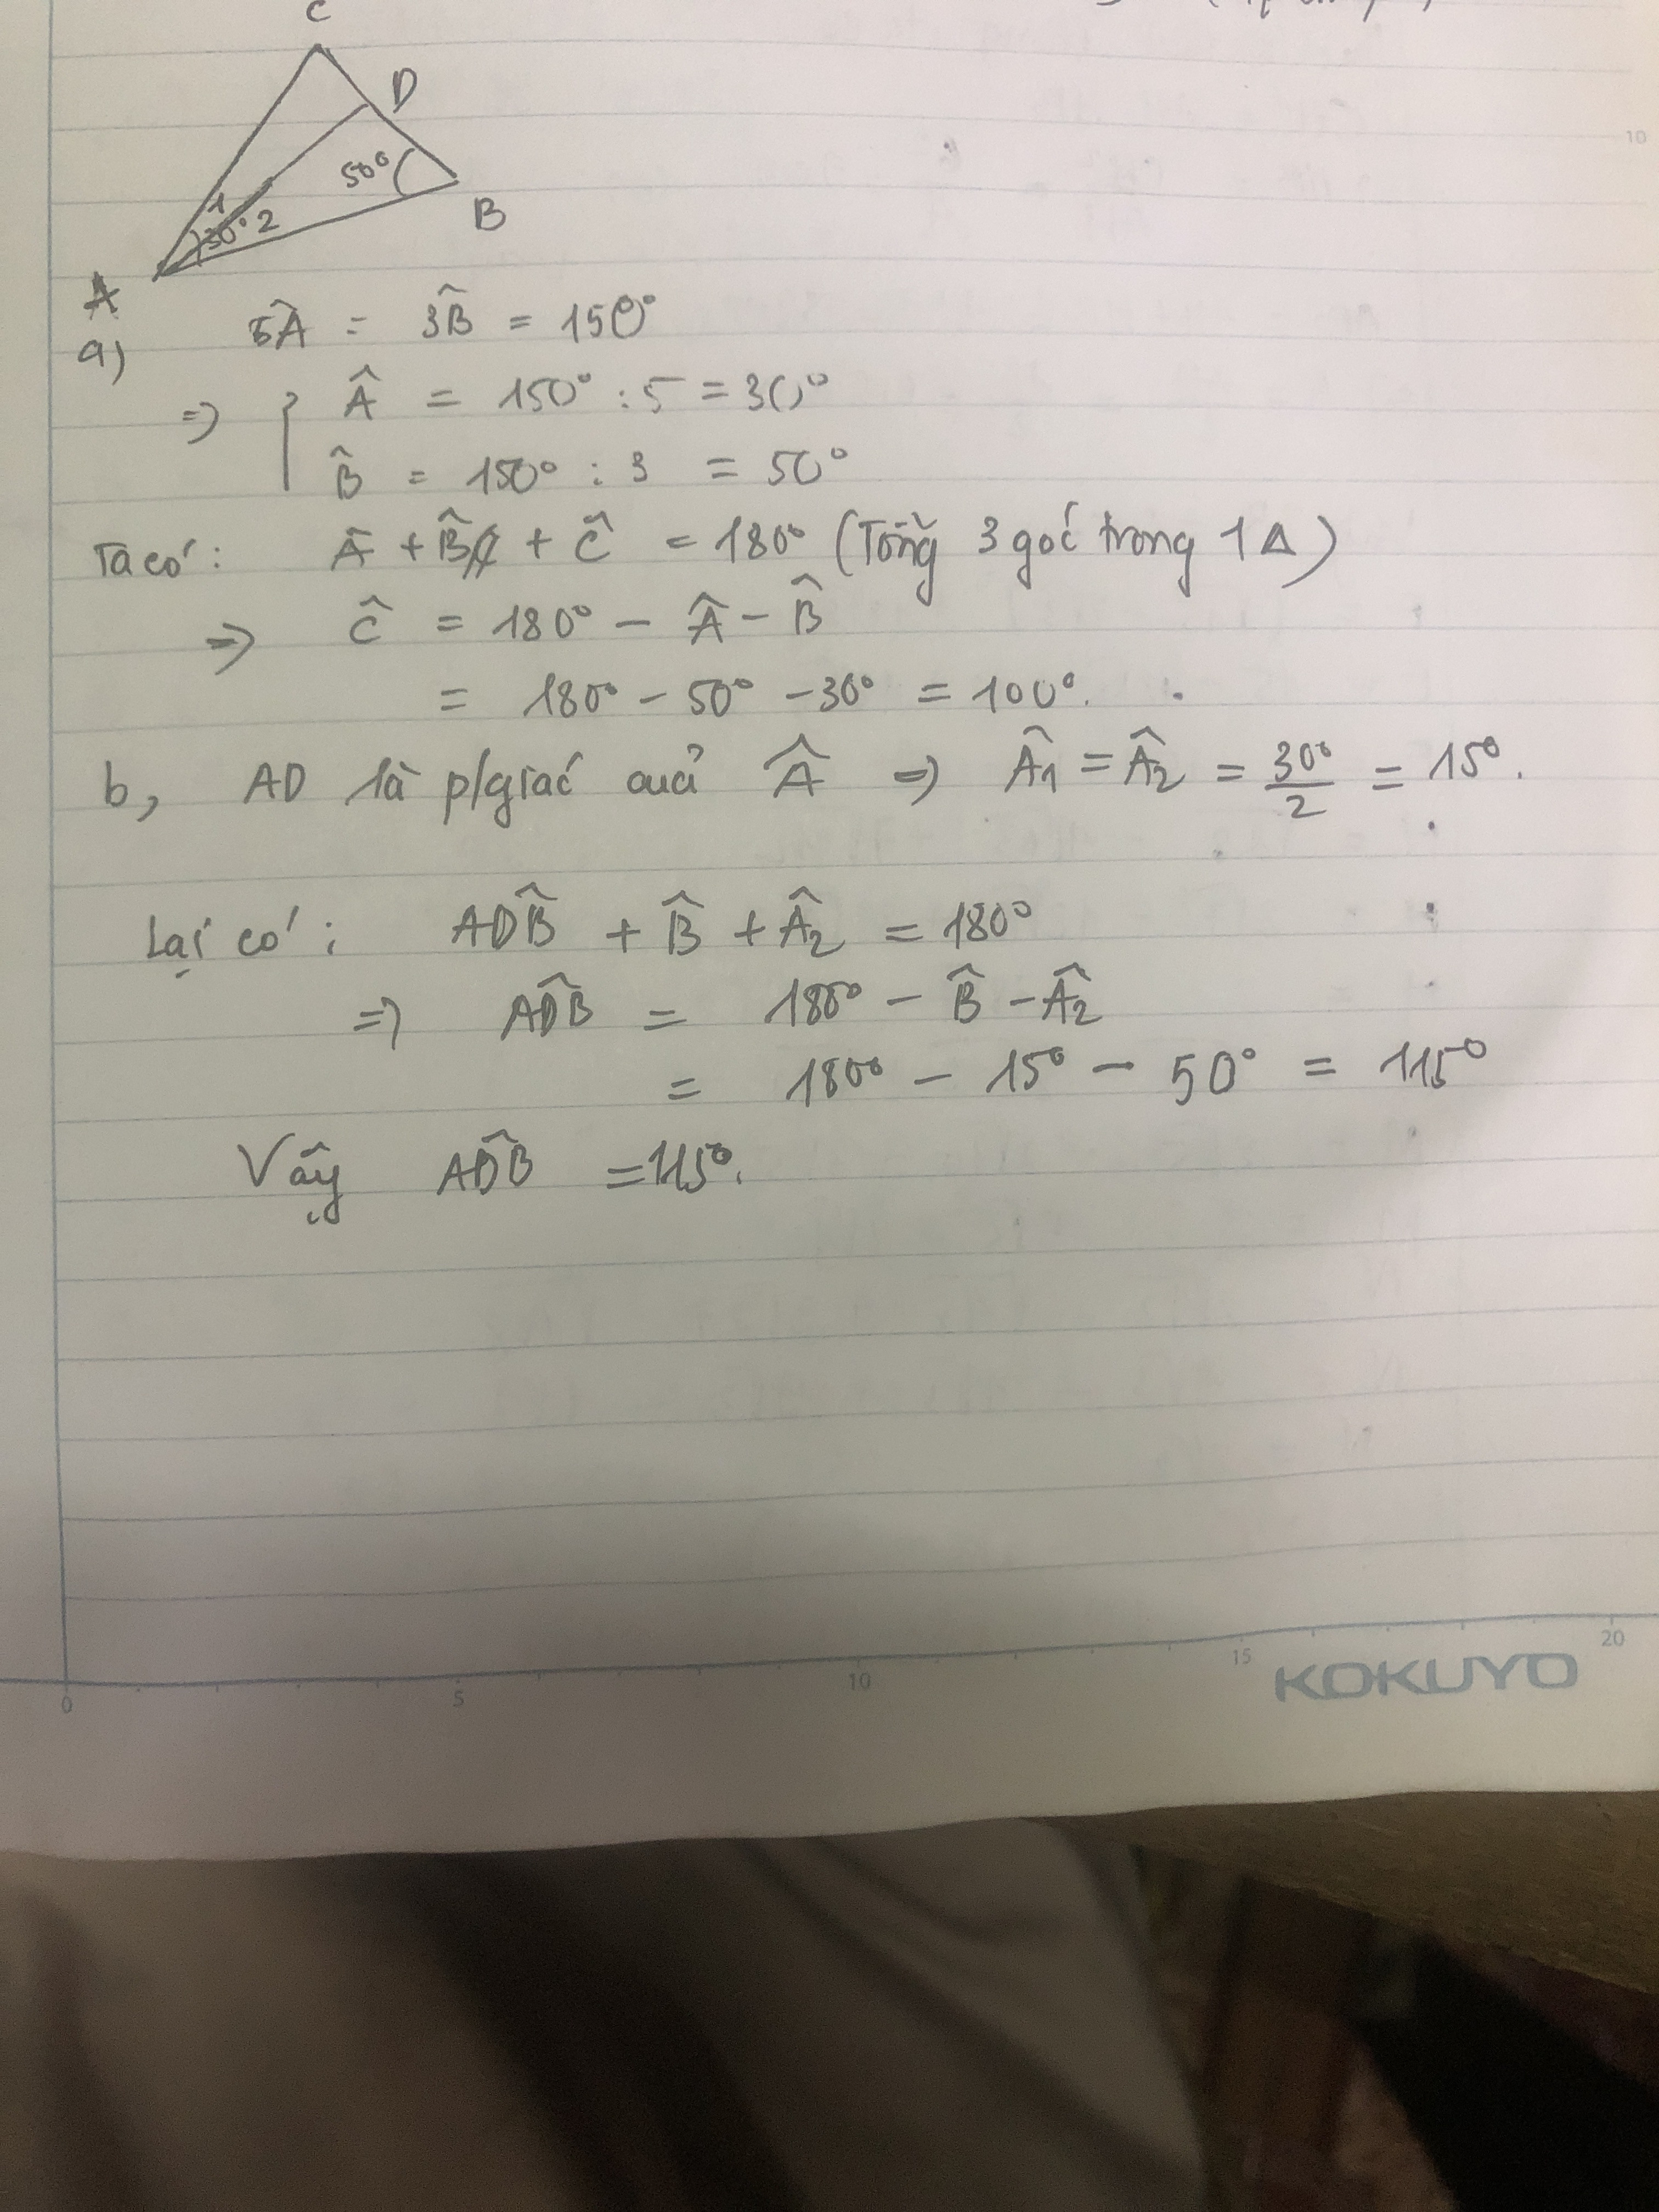 C
D
50°
B
1
30° 2
A
a) 5Â = 3B̂ = 150°
=> { Â = 150° : 5 = 30°
B̂ = 150° : 3 = 50°
Ta có: Â + B̂ + Ĉ = 180° (Tổng 3 góc trong 1 Δ)
=> Ĉ = 180° - Â - B̂
= 180° - 50° - 30° = 100°.
b, AD là p/giác của Â => Â1 = Â2 = 30°/2 = 15°.
Lại có: ADB̂ + B̂ + Â2 = 180°
=> AD̂B = 180° - B̂ - Â2
= 180° - 15° - 50° = 115°
Vậy AD̂B = 115°.
10
0 5 10 15 20
KOKUYO